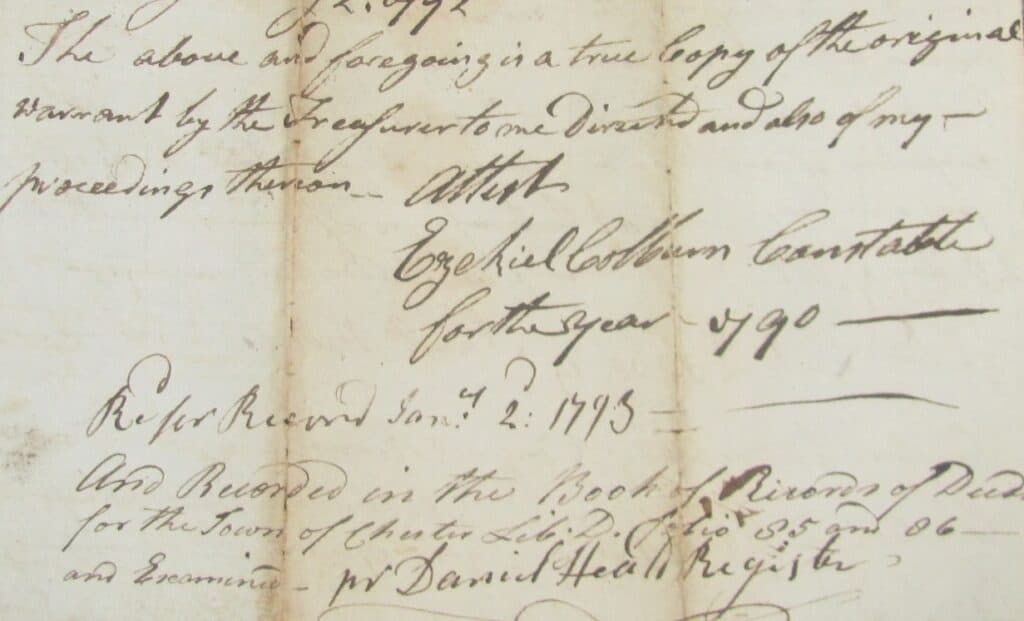 1792
The above and foregoing is a true Copy of the original
warrant by the Treasurer to me Directed and also of my —
proceedings thereon — Attest
Ezekiel Colburn Constable
for the year — 1790 —
Recd for Record Jany 2d: 1793 —
And Recorded in the Book of Records of Deeds
for the Town of Chester Lib. D. folio 85 and 86 —
and Examined — pr Daniel Heald Register